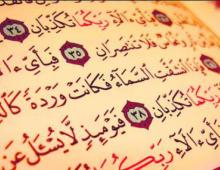 فَبِأَىِّ ءَالَآءِ رَبِّكُمَا تُكَذِّبَانِ ٣٤
وَنُحَاسٌ فَلَا تَنتَصِرَانِ ٣٥ فَبِأَىِّ
ٱنشَقَّتِ ٱلسَّمَآءُ فَكَانَتْ وَرْدَةً
تُكَذِّبَانِ ٣٨ فَيَوْمَئِذٍ لَّا يُسْـَٔلُ عَن
ءَالَآءِ